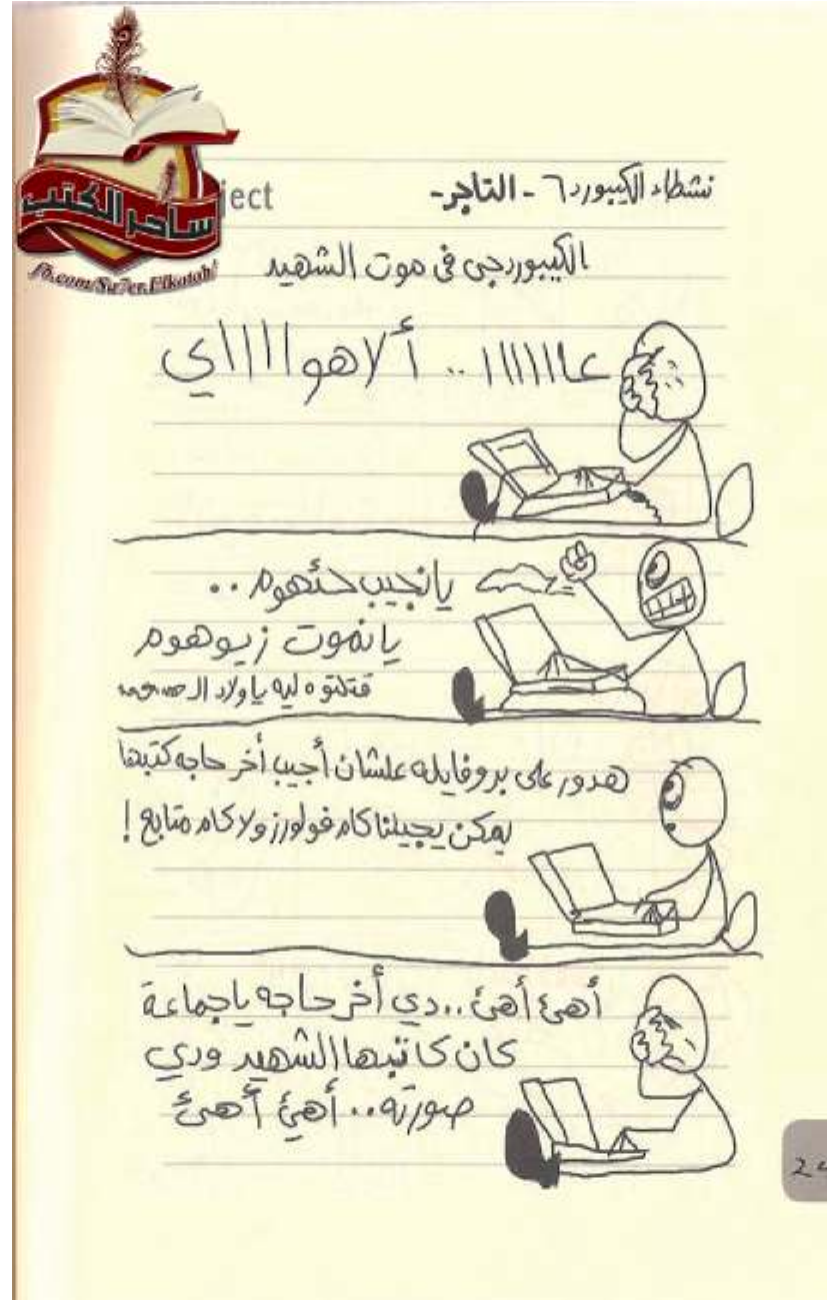 ساحر الكتب
fb.com/Sa7er.Elkotob/
ject
نشطاء الكيبورد ٦ - التاجر-
الكيبوردجى فى موت الشهيد
عاااااا .. ألاهواااااي
يانجيب حئهوم ..
يانموت زيوهوم
قتلتوه ليه ياولاد ال
هدور على بروفايله علشان أجيب أخر حاجه كتبها
يمكن يجيلنا كام فولورز ولا كام متابع !
أهئ أهئ .. دي أخر حاجه ياجماعة
كان كاتبها الشهيد ودي
صورته .. أهئ أهئ